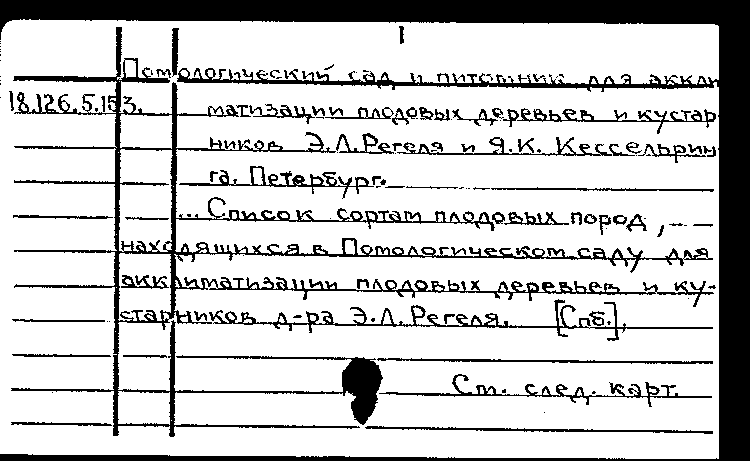 Помологический сад и питомник для аккли
18.126.5.153. матизации плодовых деревьев и кустар
ников Э.Л.Регеля и Я.К. Кессельрин
га. Петербург.
... Список сортам плодовых пород, --
находящихся в Помологическом саду для
акклиматизации плодовых деревьев и ку-
старников д-ра Э.Л.Регеля. [Спб.],
См. след. карт.